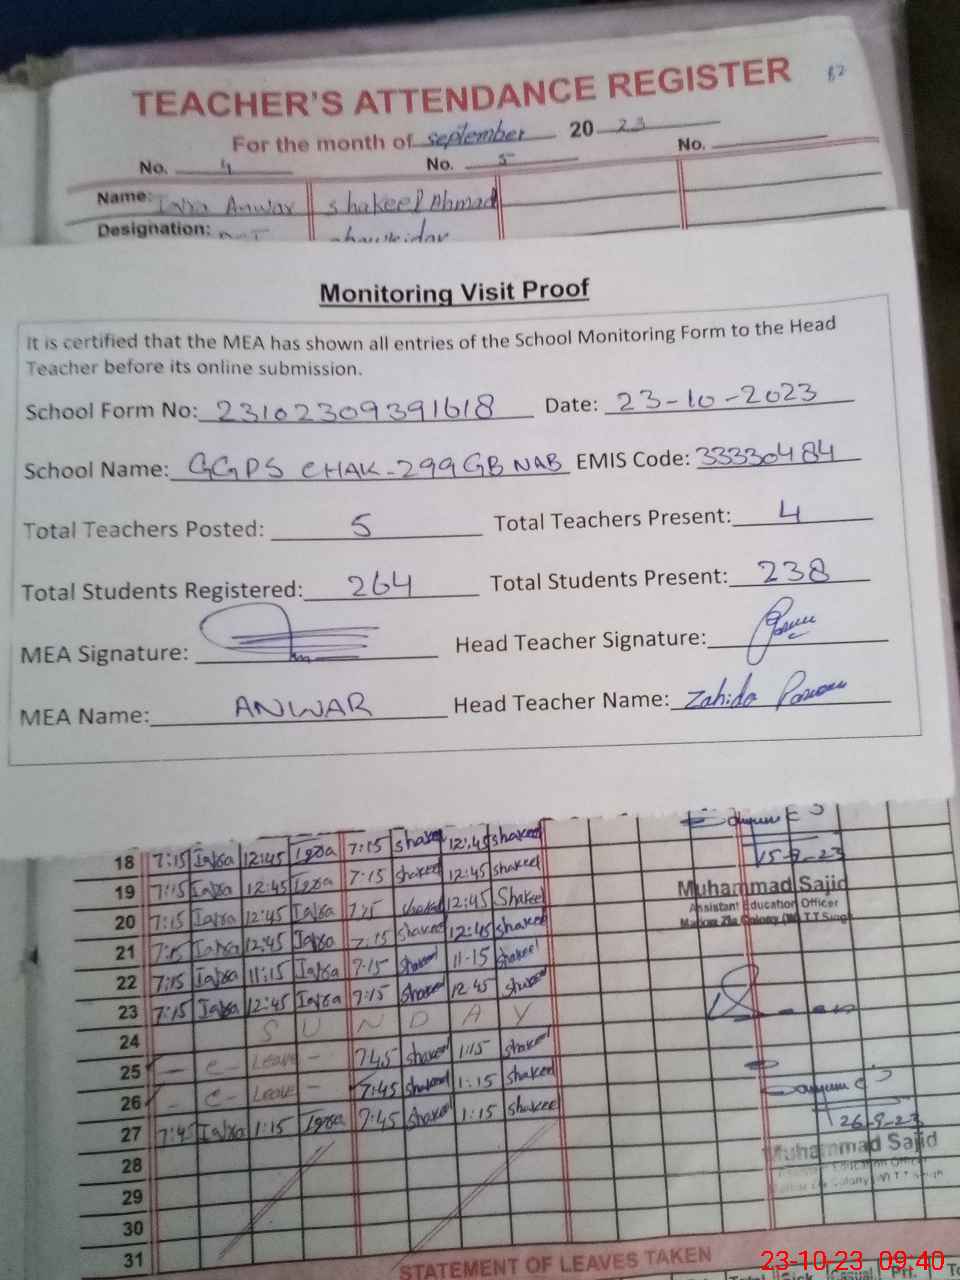 TEACHER'S ATTENDANCE REGISTER 82
For the month of september 20 23
No. 4 No. 5 No.
Name: Iqra Anwar shakeel Ahmad
Designation: chawkidar
Monitoring Visit Proof
It is certified that the MEA has shown all entries of the School Monitoring Form to the Head
Teacher before its online submission.
School Form No: 23102309391618 Date: 23-10-2023
School Name: GGPS CHAK-299GB NAB EMIS Code: 33330484
Total Teachers Posted: 5 Total Teachers Present: 4
Total Students Registered: 264 Total Students Present: 238
MEA Signature: Head Teacher Signature:
MEA Name: ANWAR Head Teacher Name: Zahida
18 7:15 Iqra 12:45 Iqra 7:15 shakeel 12:45 shakeel
15-9-23
19 7:15 Iqra 12:45 Iqra 7:15 shakeel 12:45 shakeel
Muhammad Sajid
Assistant Education Officer
20 7:15 Iqra 12:45 Iqra 7:15 shakeel 12:45 Shakeel
21 7:15 Iqra 12:45 Iqra 7:15 shakeel 12:45 shakeel
22 7:15 Iqra 11:15 Iqra 7:15 shakeel 11-15 shakeel
23 7:15 Iqra 12:45 Iqra 7:15 shakeel 12 45 shakeel
24 S U N D A Y
25 - C- Leave - 7 45 shakeel 1:15 shakeel
26 - C- Leave - 7:45 shakeel 1:15 shakeel
27 7:45 Iqra 1:15 Iqra 7:45 shakeel 1:15 shakeel
26-9-23
28
Muhammad Sajid
29
30
31
STATEMENT OF LEAVES TAKEN
23-10-23 09:40